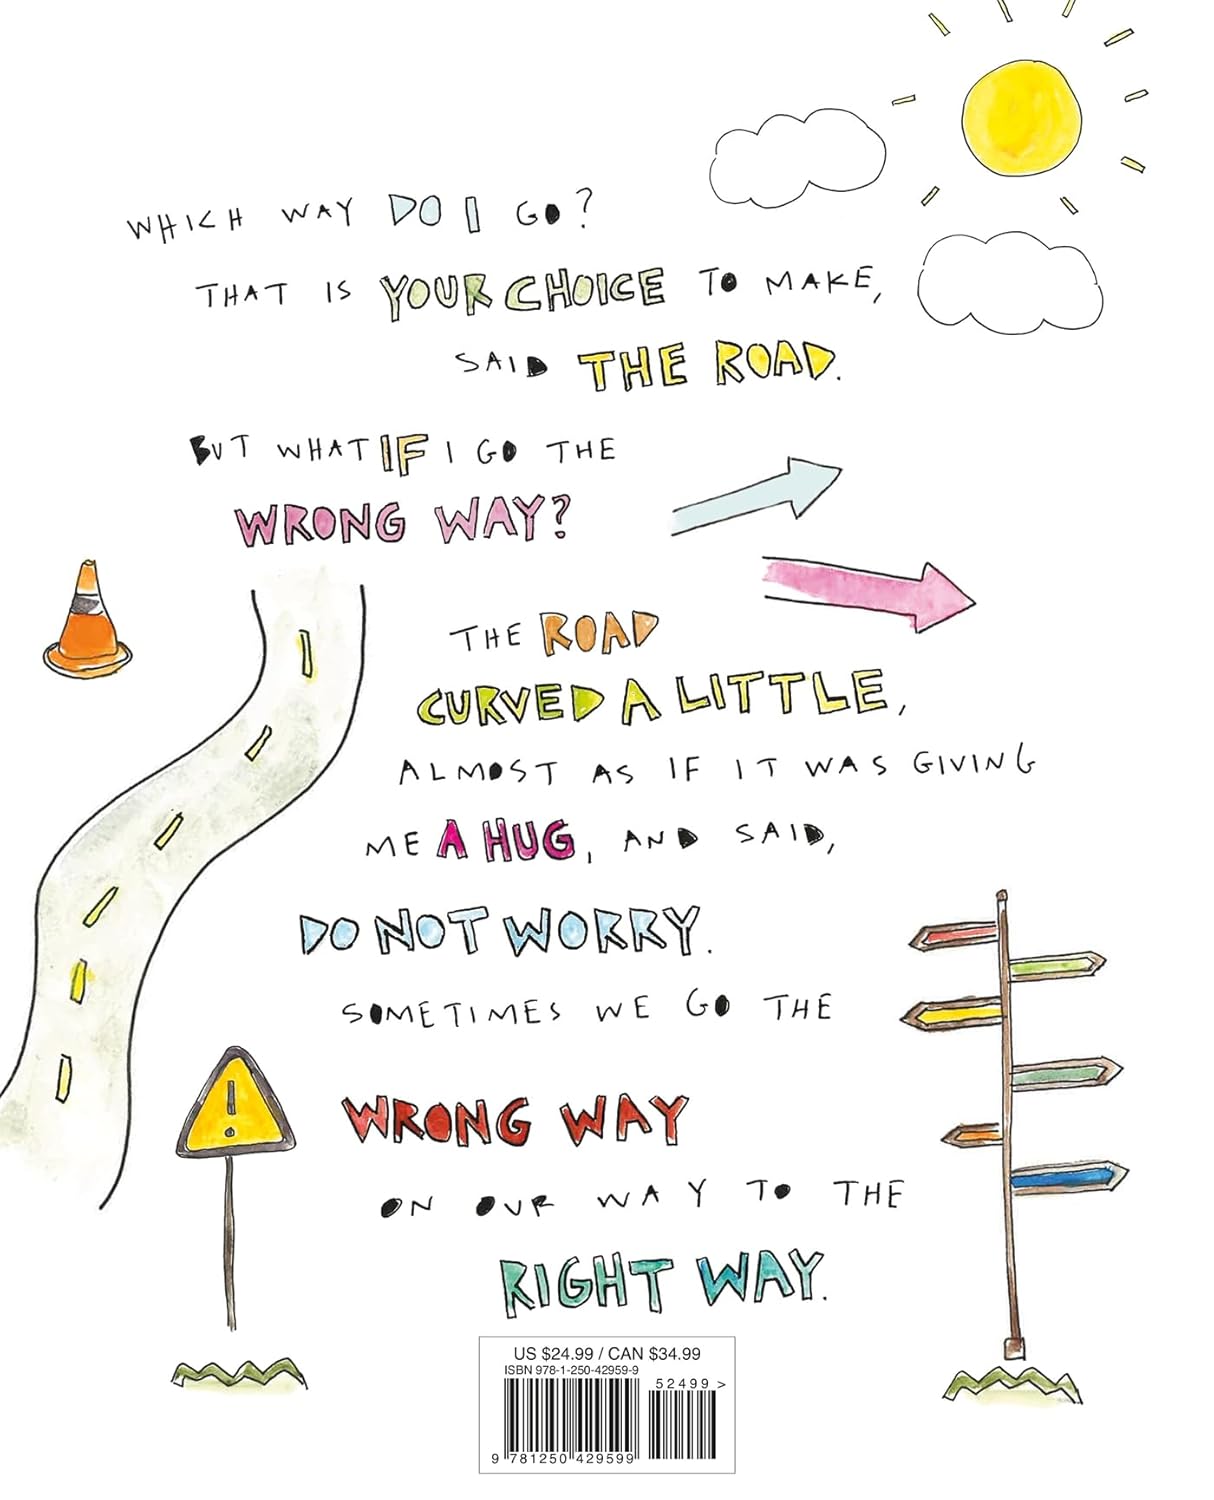 WHICH WAY DO I GO?
THAT IS YOUR CHOICE TO MAKE,
SAID THE ROAD.
BUT WHAT IF I GO THE
WRONG WAY?
THE ROAD
CURVED A LITTLE,
ALMOST AS IF IT WAS GIVING
ME A HUG, AND SAID,
DO NOT WORRY.
SOMETIMES WE GO THE
WRONG WAY
ON OUR WAY TO THE
RIGHT WAY.
!
US $24.99 / CAN $34.99
ISBN 978-1-250-42959-9
52499 >
9 781250 429599